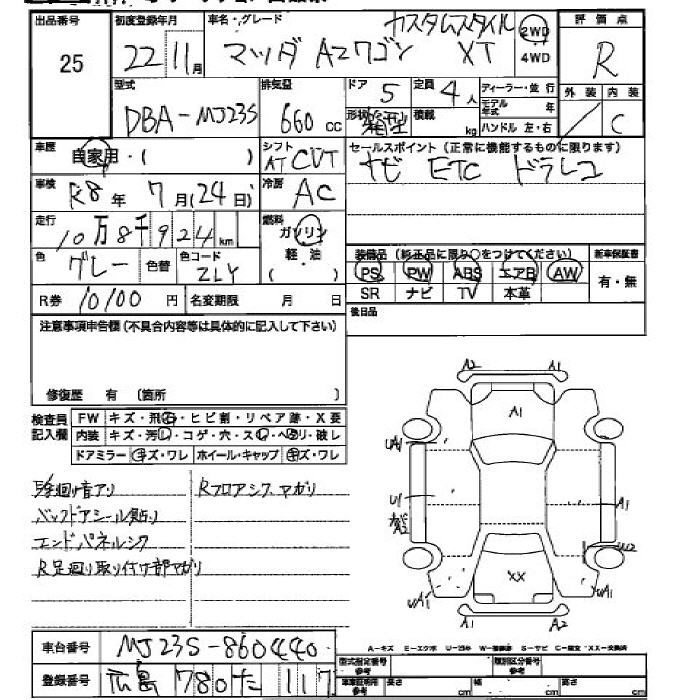 出品番号
25
初度登録年月
22 11月
車名・グレード
カスタムスタイル
マツダ AZワゴン XT
2WD
4WD
評価点
R
型式
DBA-MJ23S
排気量
660 cc
ドア 5
定員 4人
形状 箱型
積載 kg
ディーラー・並行
モデル年式 年
ハンドル 左・右
外装 内装
/ C
車歴
自家用・( )
シフト
AT CVT
セールスポイント (正常に機能するものに限ります)
ナビ ETC ドラレコ
車検
R8年 7月(24日)
冷房
AC
走行
10万8千924km
燃料
ガソリン
軽・油
( )
色
グレー
色替
色コード
ZLY
装備品 (純正品に限り○をつけてください)
PS PW ABS エアB AW
SR ナビ TV 本革
新車保証書
有・無
R券 10100円
名変期限 月 日
後日品
注意事項申告欄 (不具合内容等は具体的に記入して下さい)
修復歴 有 〔箇所 〕
検査員記入欄
FW キズ・飛石・ヒビ割・リペア跡・X要
内装 キズ・汚レ・コゲ・穴・スレ・ヘタリ・破レ
ドアミラー キズ・ワレ ホイール・キャップ キズ・ワレ
足廻り音アリ
Rフロアシワ マガリ
バックドアシール貼り
エンドパネルシワ
R足廻り取り付け部マガリ
A2 A1
A1
UA1
U1
A2
A1
U2
XX
UA1
UA1
A1 A2
A-キズ E-エクボ U-凹み W-補修跡 S-サビ C-腐食 XX-交換済
車台番号
MJ23S-860440
登録番号
広島 780 た 117
型式指定番号 参考
類別区分番号 参考
車庫証明用 参考
長さ cm
幅 cm
高さ cm